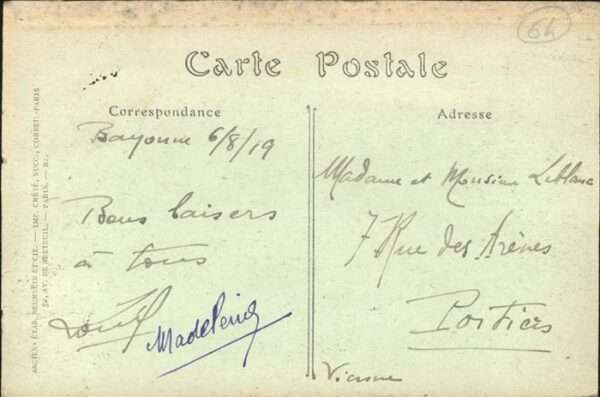 64
Carte Postale
Correspondance
Adresse
Bayonne 6/8/19
Bons baisers
à tous
Madeleine
Madame et Monsieur Leblanc
7 Rue des Arènes
Poitiers
Vienne